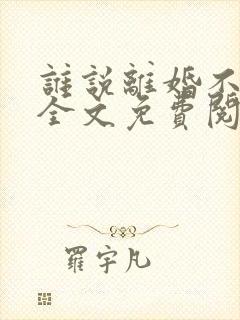 誰說離婚不
全文免費閱
羅宇凡